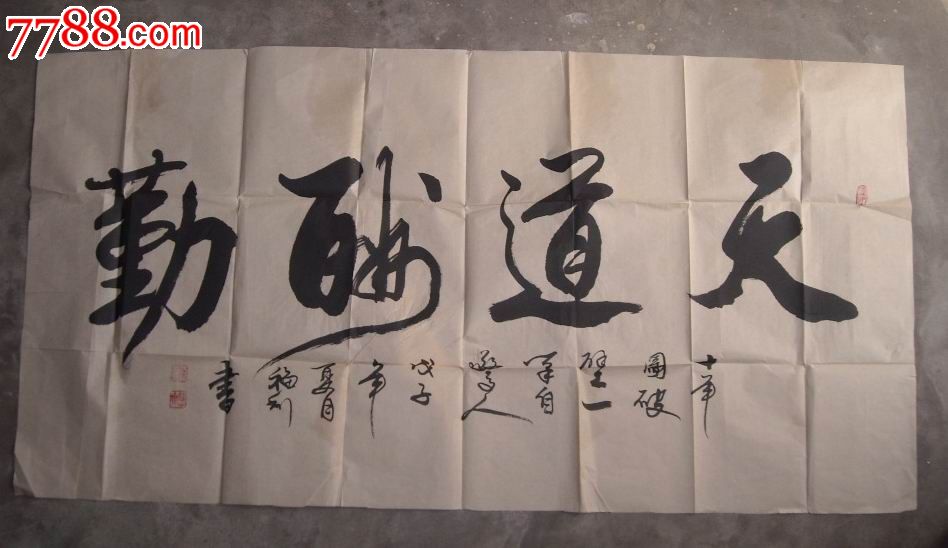 7788.com
天道酬勤
十年
圖破
壁一
筆自
人
戊子
年
夏月
福
書